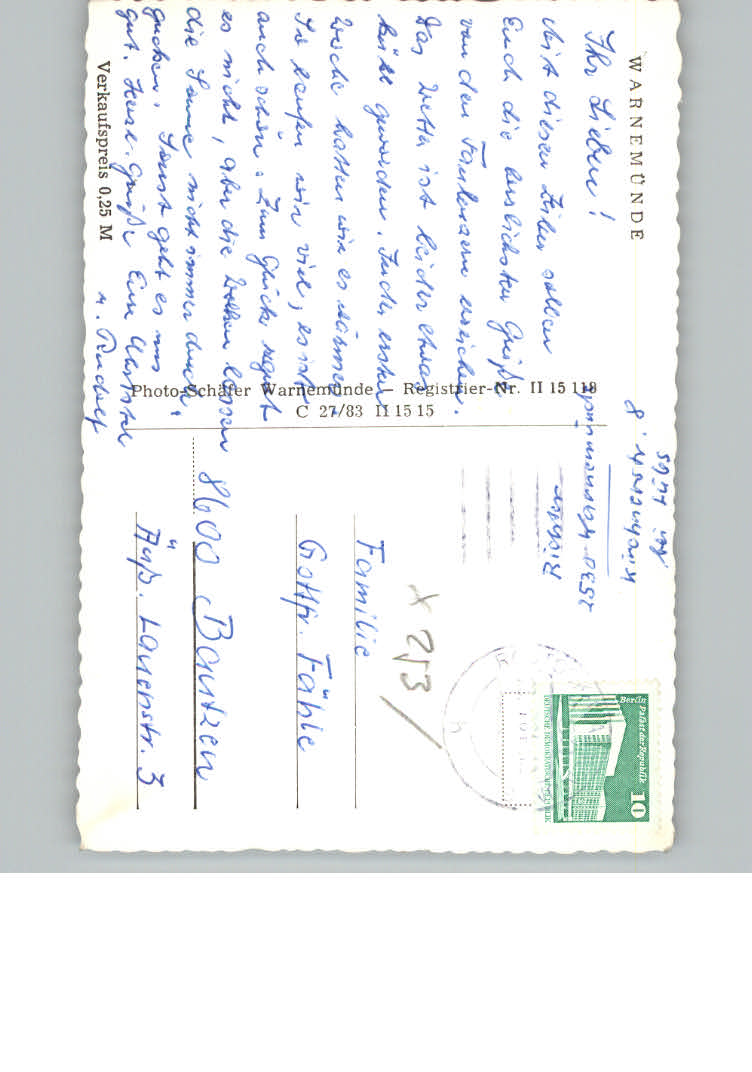 WARNEMÜNDE
Ihr Lieben!
Mit diesen Zeilen sollen
Euch die herzlichsten Grüße
von den Faulenzern erreichen.
Das Wetter ist leider etwas
kühl geworden. In der ersten
Woche hatten wir es wärmer
So laufen wir viel, es ist
auch schön. Zum Glück regnet
es nicht, aber die Wolken lassen
die Sonne nicht immer durch
gucken. Sonst geht es uns
gut. Herzl. Grüße Eure
u. Rudolf
Verkaufspreis 0,25 M
Photo-Schäfer Warnemünde – Registrier-Nr. II 15 118
C 27/83 II 15 15
Kirchnerstr. 8
2530 Warnemünde
Richter
Familie
Gottfr. Fähle
8600 Bautzen
Äuß. Lauenstr. 3
x 2/3
Berlin
Palast der Republik
10
DEUTSCHE DEMOKRATISCHE REPUBLIK